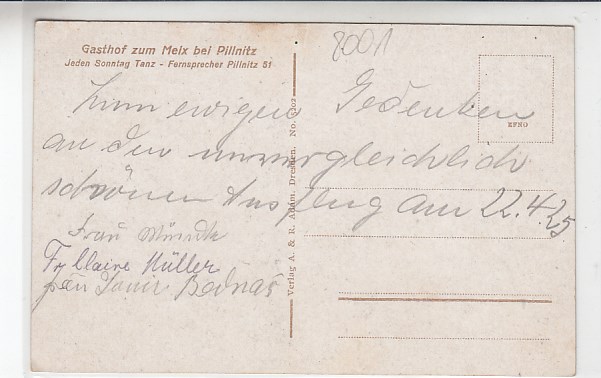 Gasthof zum Meix bei Pillnitz
Jeden Sonntag Tanz - Fernsprecher Pillnitz 51
8001
Zum ewigen Gedenken
an den unvergleichlich
schönen Ausflug am 22.4.25
Frau
Frl Claire Müller
Bednaš
Verlag A. & R. Adam, Dresden. No.